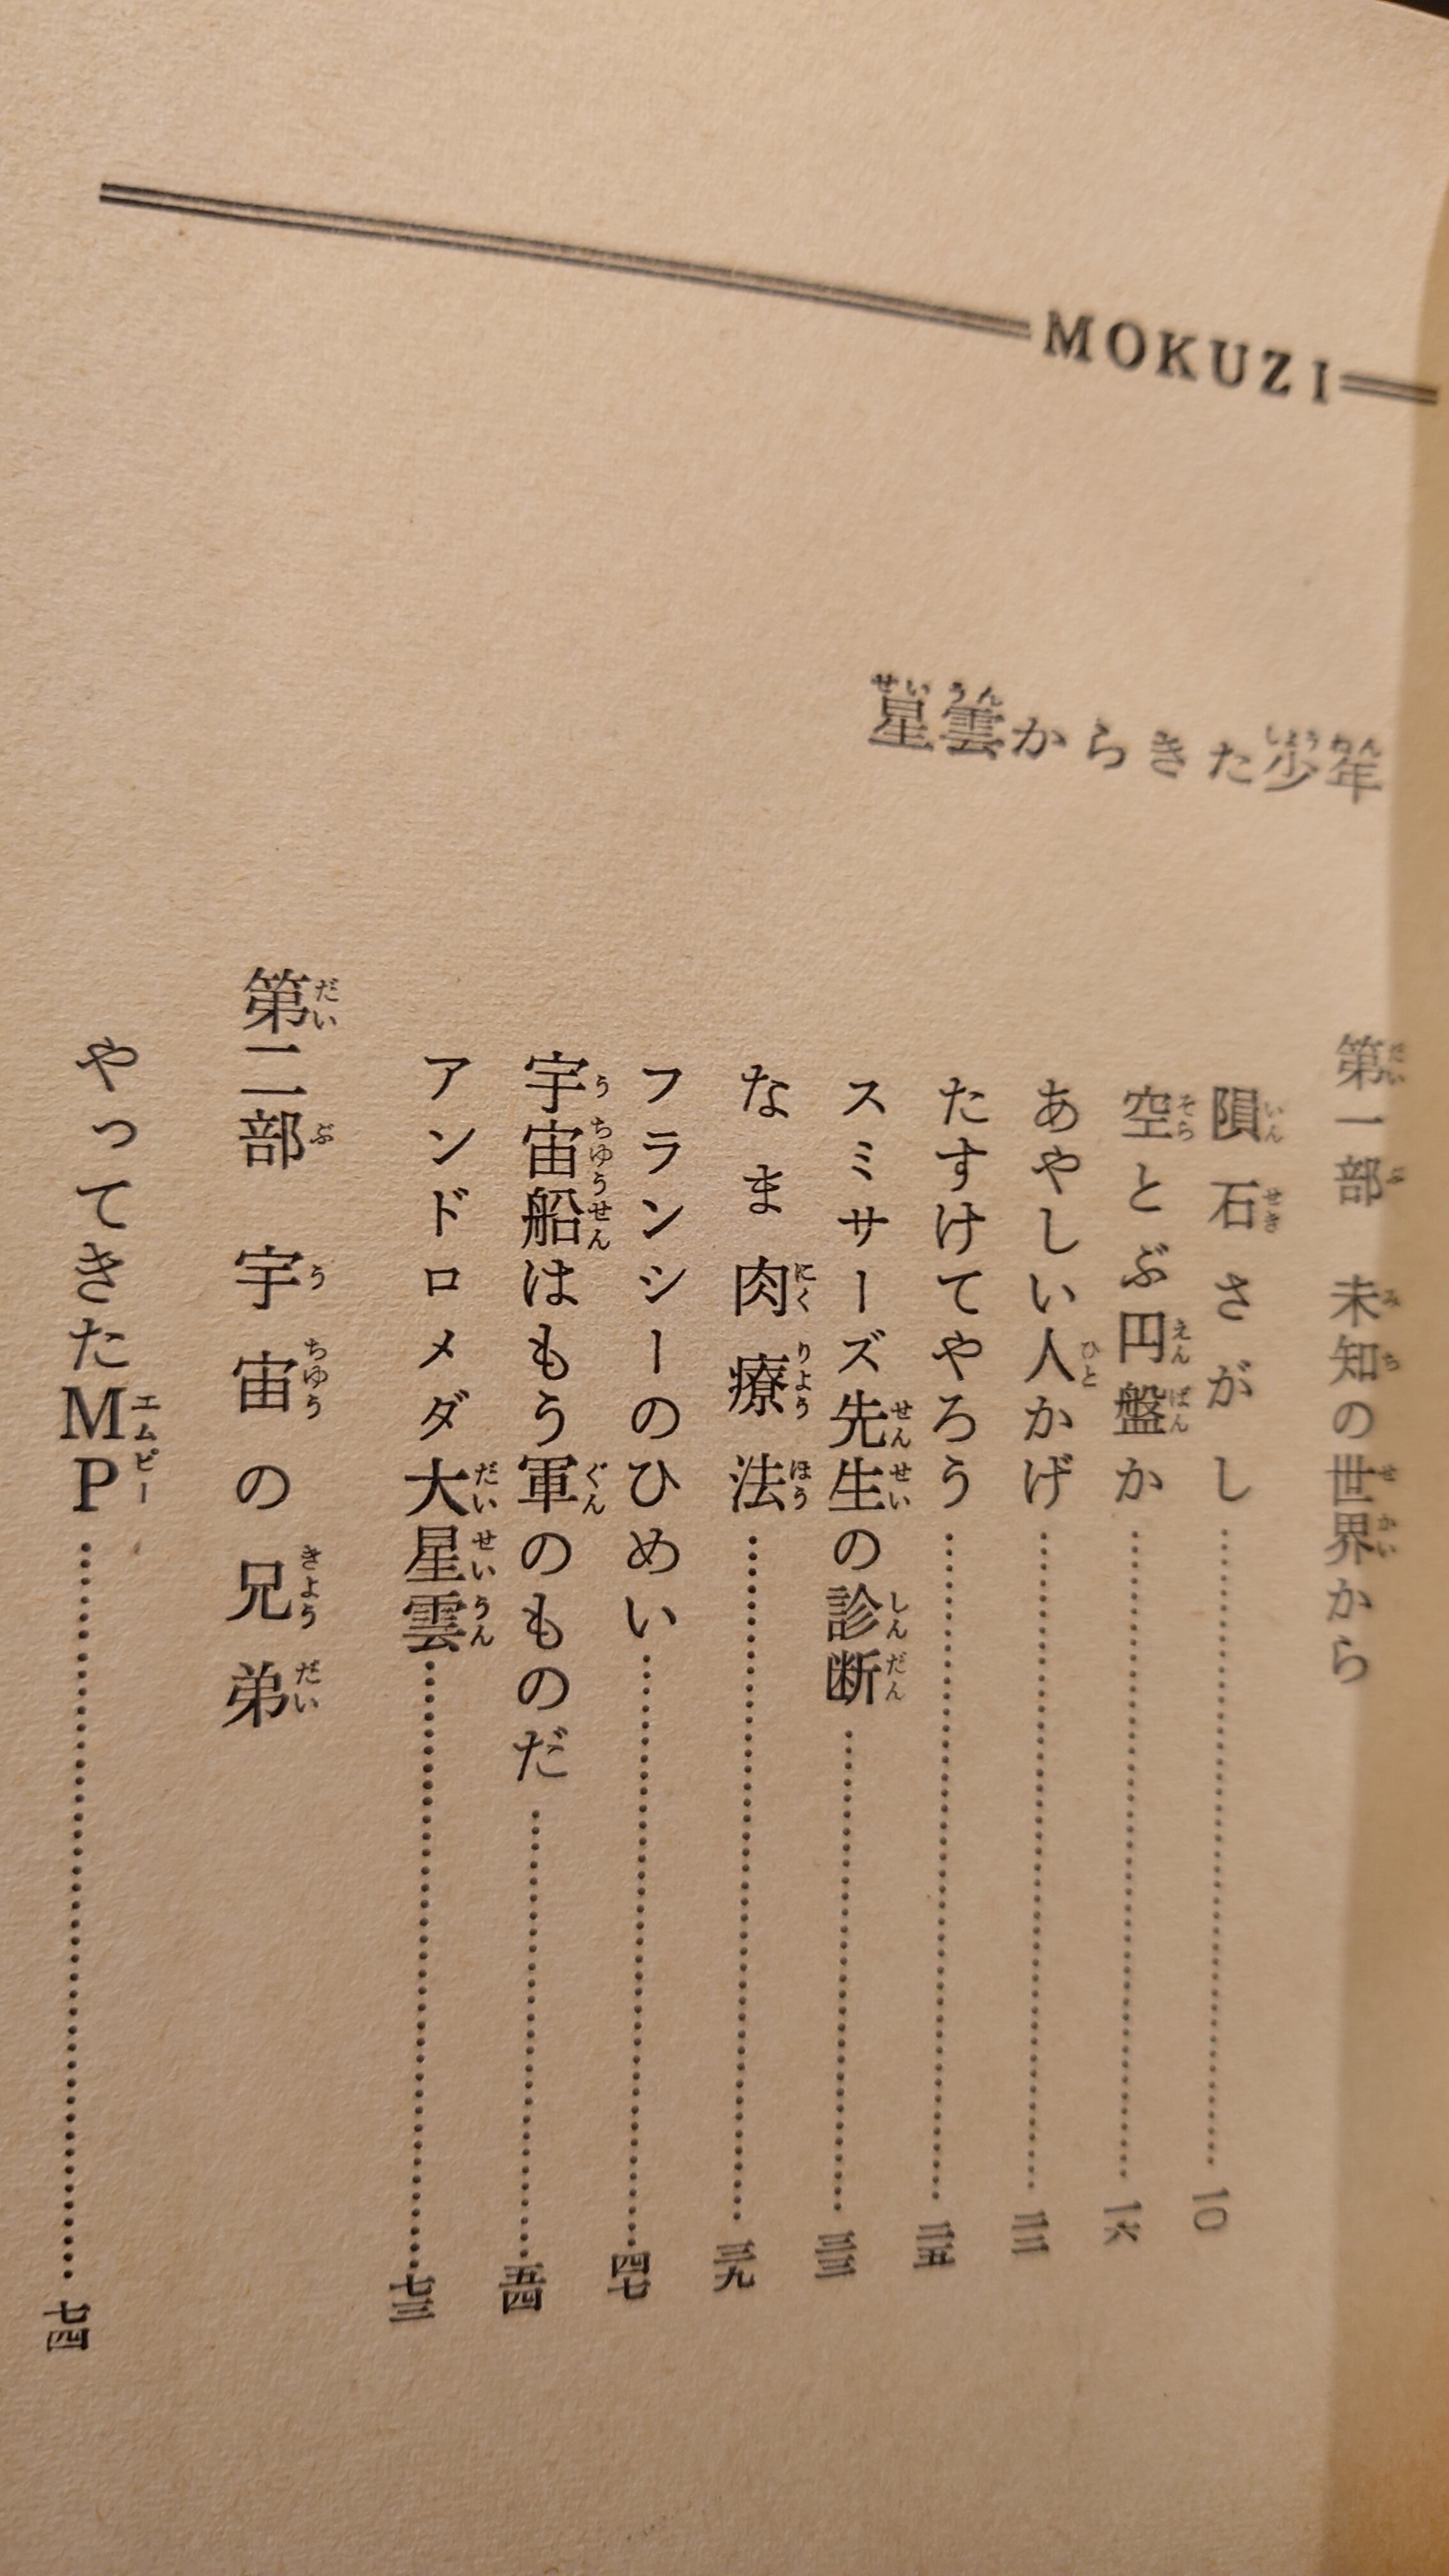 MOKUZI
星雲からきた少年
第一部 未知の世界から
隕石さがし…………10
空とぶ円盤か…………1六
あやしい人かげ…………二二
たすけてやろう…………二五
スミサーズ先生の診断…………三三
なま肉療法…………三九
フランシーのひめい…………四七
宇宙船はもう軍のものだ…………五四
アンドロメダ大星雲…………七三
第二部 宇宙の兄弟
やってきたMP…………七四